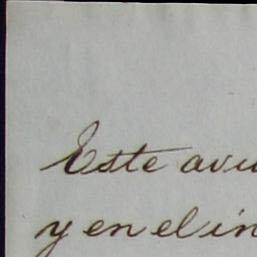 Este avi
y en el in